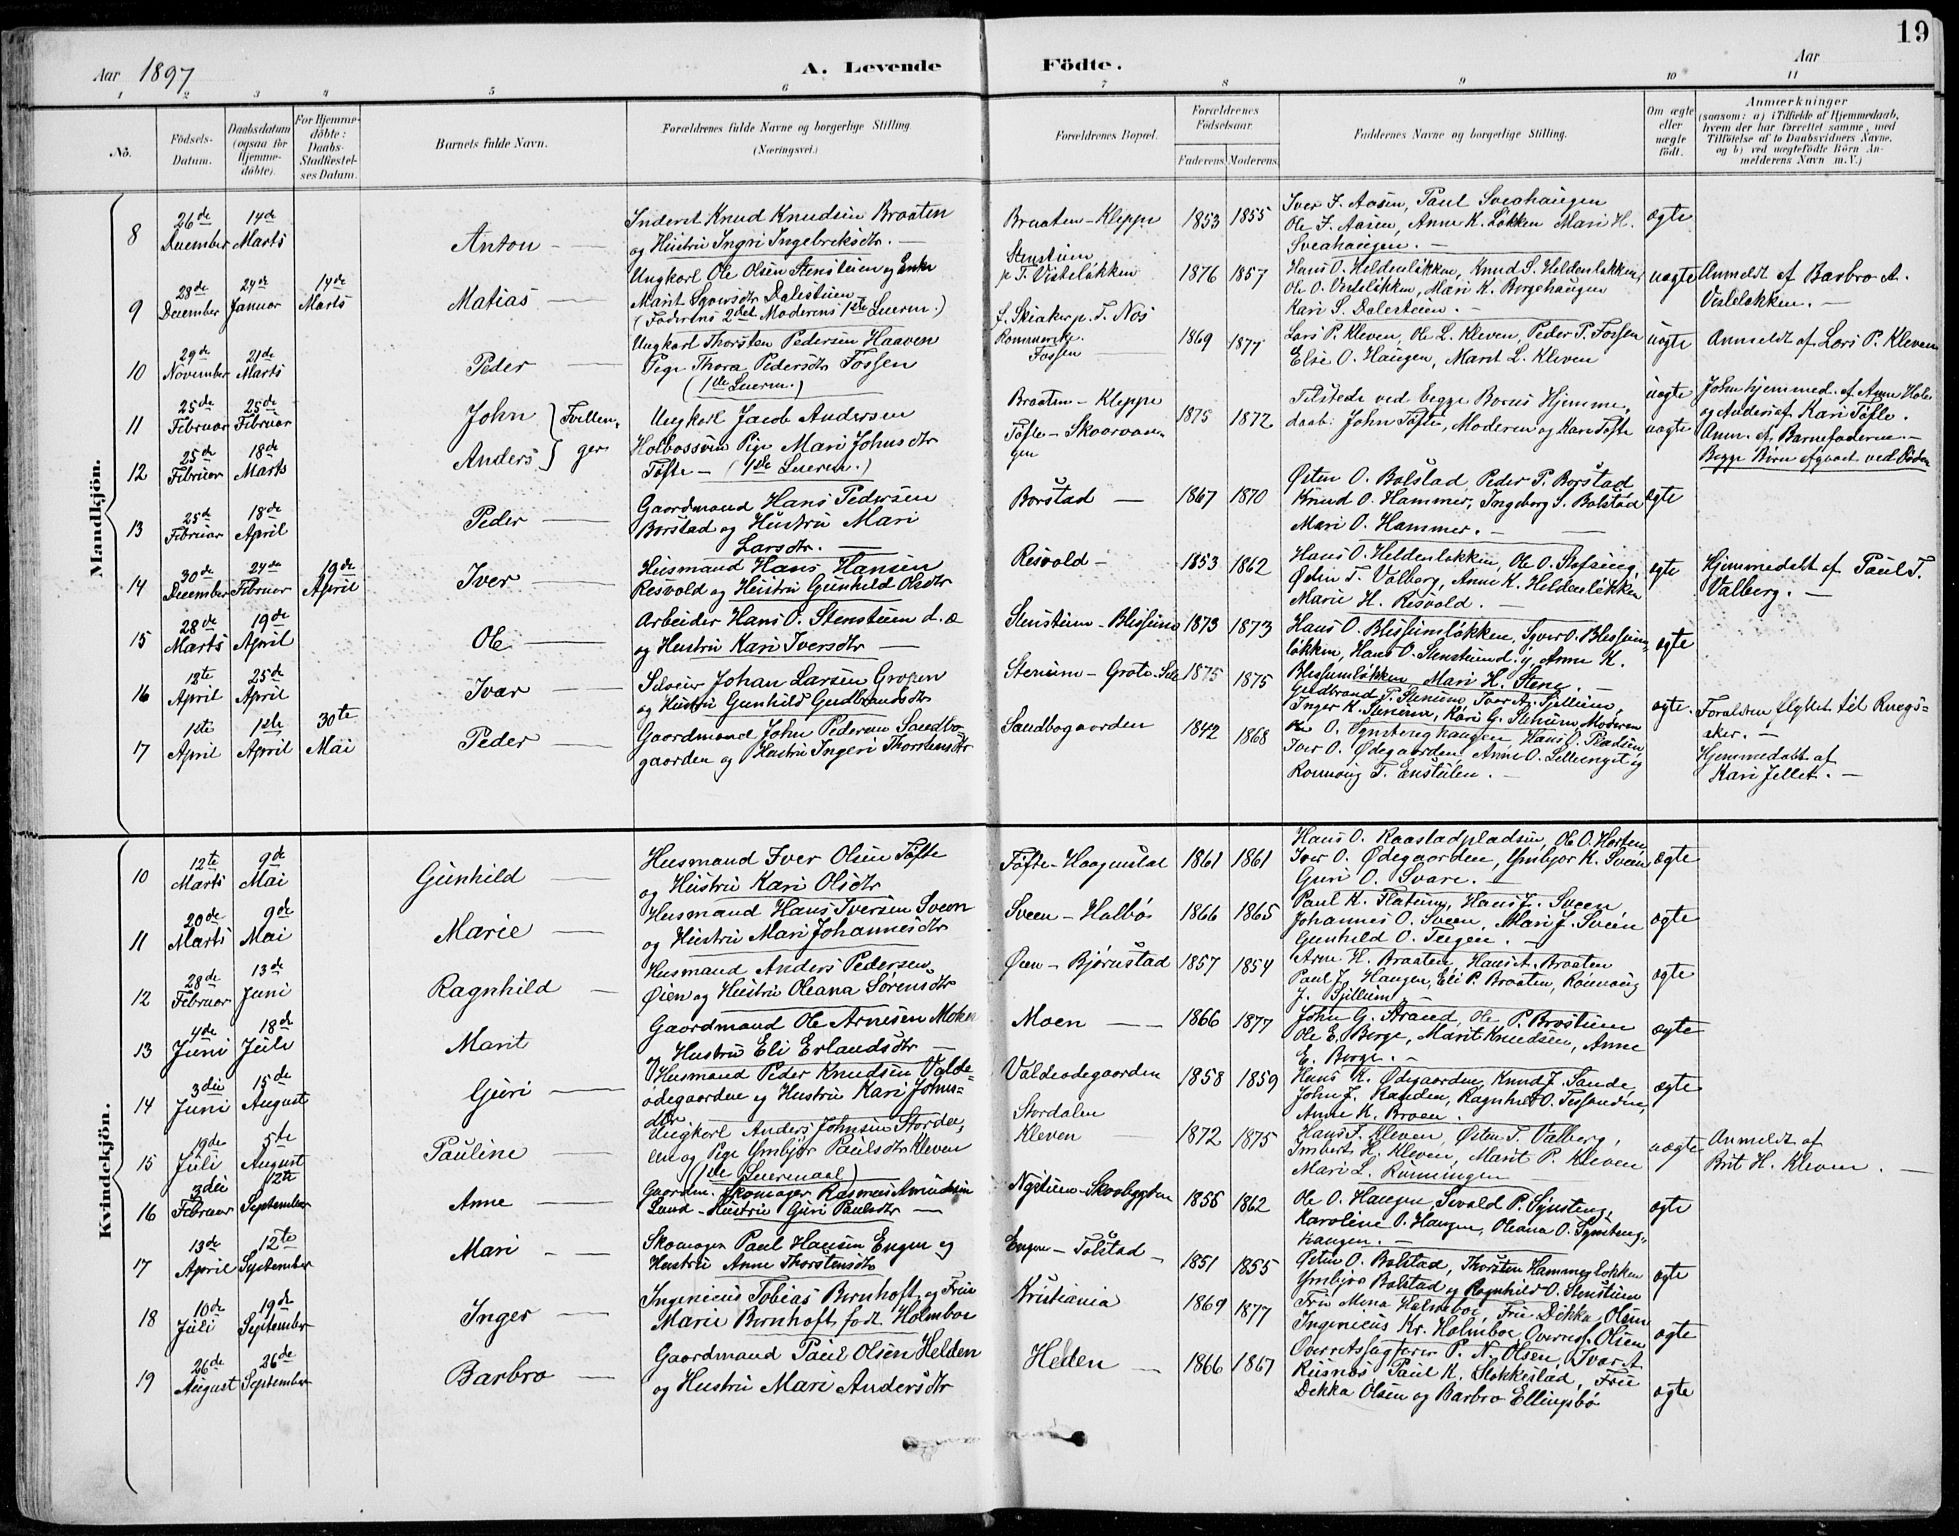 19
Aar 1897
A. Levende Födte.
Aar
1 2 3 4 5 6 7 8 9 10 11
No.
Födsels-Datum.
Daabsdatum (ogsaa for Hjemmedöbte).
For Hjemmedöbte: Daabs-Stadfæstelses Datum.
Barnets fulde Navn.
Forældrenes fulde Navne og borgerlige Stilling (Næringsvei.)
Forældrenes Bopæl.
Forældrenes Födselsaar.
Faderens. Moderens.
Faddernes Navne og borgerlige Stilling.
Om ægte eller uægte födt.
Anmærkninger
(saasom: a) i Tilfælde af Hjemmedaab, hvem der har forrettet samme, med Tilföielse af to Daabsvidners Navne, og b) ved uægtefödte Börn Anmelderens Navn m. V.)
Mandkjön.
8 26de December 14de Marts Anton
Inderst Knud Knudsen Braaten
og Hustru Ingri Ingebrektsdtr.
Braaten - Kleppe 1853 1855
Iver F. Aasen, Paul Sveahaugen
Ole F. Aasen, Anne K. Løkken Mari H.
Sveahaugen.
ægte
9 28de December 24de Januar 14de Marts Matias
Ungkarl Ole Olsen Stenstuen og Enke
Marit Syversdtr Dalestuen
(Faderens 2det Moderens 1ste Leierm.)
Stenstuen
p. T. Visteløkken
f. Skiaker p. T. Nos
1876 1857
Hans O. Heldenløkken, Knud S. Heldenløkken,
Ole O. Visteløkken, Mari K. Borgehaugen
Kari S. Dalestuen.
uægte
Anmeldt af Barbro A.
Visteløkken.
10 29de November 21de Marts Peder
Ungkarl Thorsten Pedersen Haaven
Pige Thora Pedersdtr Fossen
(1ste Leierm.)
Fossen
1869 1877
Lars P. Kleven, Ole L. Kleven, Peder P. Fossen
Else O. Haugen, Marit L. Kleven
uægte
Anmeldt af Lars P. Kleven
11 25de Februar 25de Februar John
12 25de Februar 18de Marts Anders
Tvillinger
Ungkarl Jacob Andersen
Holbossveen Pige Mari Johnsdtr
Tøfte - (1ste Leierm.)
Braaten - Kleppe
Tøfte - Skaarvangen
1875 1872
Tilstede ved begge Børns Hjemmedaab: John Tøfte, Moderen og Kari Tøfte
uægte
uægte
John hjemmed. af Anne Holbo
og Anders af Kari Tøfte.
Anm. af Barnefaderen.
Begge Børn afgaaet ved Døden
13 25de Februar 18de April Peder
Gaardmand Hans Pedersen
Borstad og Hustru Mari
Larsdtr.
Borstad 1867 1870
Østen O. Bolstad Peder P. Borstad
Knud O. Hammer, Ingeborg S. Bolstad
Mari O. Hammer.
ægte
14 30de December 24de Februar 19de April Iver
Husmand Hans Hansen
Risvold og Hustru Gunhild Olsdtr
Risvold 1853 1862
Hans O. Heldenløkken, Ole O. Stafseng,
Østen T. Valberg, Anne K. Heldenløkken
Marie H. Risvold.
ægte
Hjemmedøbt af Paul T.
Valberg.
15 28de Marts 19de April Ole
Arbeider Hans O. Stenstuen d. æ
og Hustru Kari Iversdtr
Stenstuen - Blessum 1873 1873
Hans O. Blessumløkken, Syver O. Blessumløkken, Hans O. Stenstuen d. y., Anne K.
Blessumløkken Mari H. Stene.
ægte
16 April 25de April Ivar
Johan Larsen
og Hustru Gunhild Gudbrandsdtr
1875 1875
ægte.
Forældren flyttet til
17 1ste April 1ste April 30te Mai Peder
Gaardmand John Pedersen Sandbogaarden og Hustru Ingeri Thorstensdtr
Sandbogaarden 1842 1868
Iver O. Ødegaarden, Anne O. Lillenget og
Ronnoug T. Enstulen.
Hjemmedøbt af
Kari Jellet.
Kvindekjön.
10 12te Marts 9de Mai Gunhild
Husmand Iver Olsen Tøfte
og Hustru Kari Olsdtr
Tøfte - Haagenstad 1861 1861
Hans O. Raastadpladsen, Ole O. Horten,
Iver O. Ødegaarden, Ymbjor K. Sveen
Guri O. Svare.
ægte
11 20de Marts 9de Mai Marie
Husmand Hans Iversen Sveen
og Hustru Mari Johannesdtr
Sveen - Holbø 1866 1865
Paul K. Flatum, Hans J. Sveen
Johannes O. Sveen, Mari J. Sveen
Gunhild O. Teigen.
ægte
12 28de Februar 13de Juni Ragnhild
Husmand Anders Pedersen
Øien og Hustru Oleana Sørensdtr
Øien - Bjørnstad 1857 1854
Arne H. Braaten, Hans A. Braaten
Paul J. Haugen, Eli P. Braaten, Rønnoug
J. Sjellum
ægte
13 4de Juni 18de Juli Marit
Gaardmand Ole Arnesen Moen
og Hustru Eli Erlandsdtr
Moen 1866 1877
John G. Strand, Ole P. Brostuen
Ole E. Berge, Marit Knudsen, Anne
E. Berge.
ægte
14 3die Juni 15de August Guri
Husmand Peder Knudsen Valdeødegaarden og Hustru Kari Johnsdtr
Valdeødegaarden 1858 1859
Hans K. Ødegaarden, Knud J. Sande,
John J. Randen, Ragnhild O. Tessanden,
Anne K. Broen.
ægte
15 19de Juli 5te August Pauline
Ungkarl Anders Johnsen Stordalen og Pige Ymbjør Paulsdtr Kleven
(1ste Leiermaal)
Stordalen
Kleven
1872 1875
Hans T. Kleven, Østen T. Valberg,
Imbert H. Kleven, Marit P. Kleven
Mari L. Rønningen
uægte
Anmeldt af
Brit H. Kleven.
16 3die Februar 12te September Anne
Gaardm. Skomager Rasmus Amundsen
Lund - Hustru Guri Paulsdtr
Nystuen - Skovbygden 1856 1862
Ole O. Haugen, Sivald P. Synsteng,
Karoline O. Haugen, Oleana O. Synstenghaugen.
ægte
17 13de April 12te September Mari
Skomager Paul Hansen Engen og
Hustru Anne Thorstensdtr
Engen - Tolstad 1851 1855
Østen O. Bolstad, Thorsten Hammerløkken
Ymbjor Bolstad og Ragnhild O. Stenstuen
ægte
18 10de Juli 19de September Inger
Ingeniør Tobias Bernhoft og Frue
Marie Bernhoft født Holmboe
Kristiania 1869 1877
Fru Mina Holmboe, Fru Dekka Olsen
Ingeniør Kr. Holmboe
Overretssagfører P. N. Olsen
ægte
19 26de August 26de September Barbro
Gaardmand Paul Olsen Helden
og Hustru Mari Andersdtr
Helden 1866 1867
Ivar A
Riisnæs Paul K. Slokkestad, Fru
Dekka Olsen og Barbro Ellingsbø
ægte